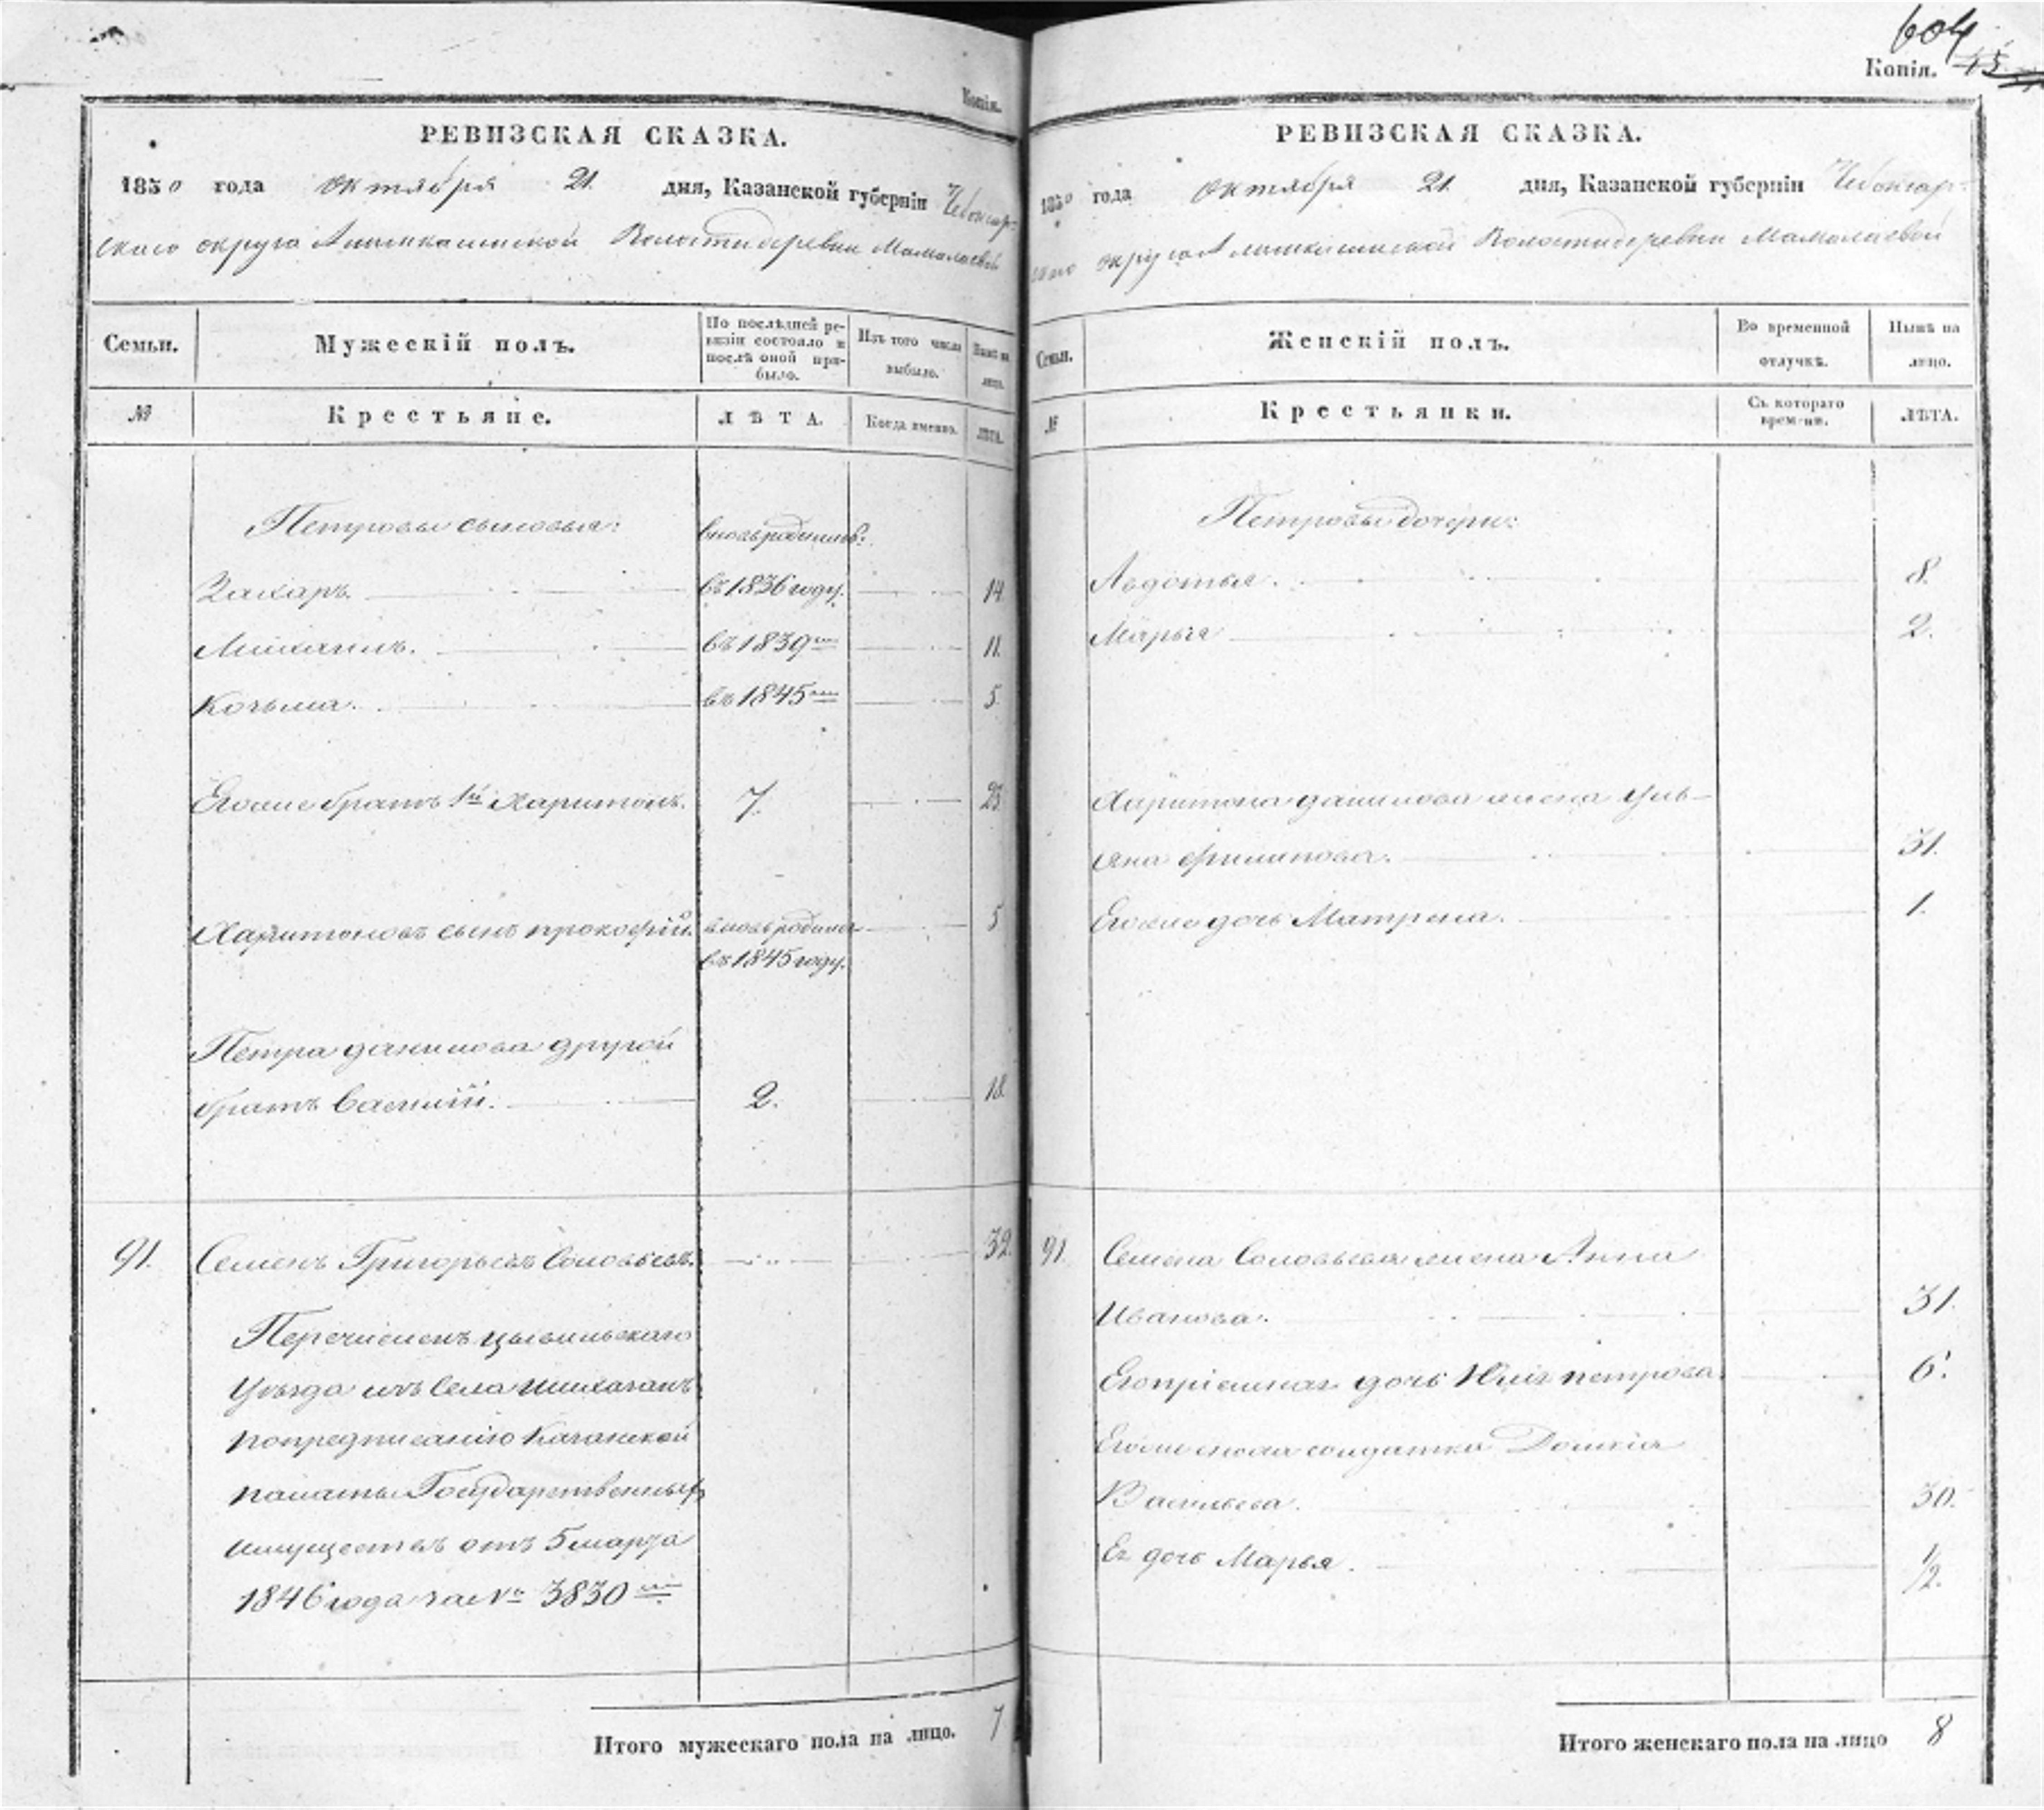 604
Копія. 45
Копія.
РЕВИЗСКАЯ СКАЗКА.
1850 года октября 21. дня, Казанской губерніи Чебоксар-
скаго округа Волости деревни Мамалаевой
Семьи.
Мужескій полъ.
По послѣдней ре-
визіи состояло и
послѣ оной при-
было.
Изъ того числа
выбыло.
Нынѣ на
лицо.
№
Крестьяне.
ЛѢТА.
Когда именно.
ЛѢТА.
Петровы сыновья: вновь родились:
Захаръ. въ 1836 году. 14.
Михаилъ. въ 1839 мъ 11.
Козьма. въ 1845 мъ 5.
Его же братъ 1й Харитонъ. 7. 23.
Харитоновъ сынъ прокофій. вновь родился 5
въ 1845 году.
Петра данилова другой
братъ Василій. 2. 18.
91. Семенъ Григорьевъ Соловьевъ. 32.
Перечисленъ цывильскаго
уѣзда изъ Села Шихазанъ
по предписанію Казанской
палаты Государственныхъ
имуществъ отъ 5 марта
1846 года за № 3830 мъ
Итого мужескаго пола на лицо. 7
РЕВИЗСКАЯ СКАЗКА.
1850 года октября 21. дня, Казанской губерніи Чебоксар-
скаго округа Волости деревни Мамалаевой
Семьи.
Женскій полъ.
Во временной
отлучкѣ.
Нынѣ на
лицо.
№
Крестьянки.
Съ котораго
времени.
ЛѢТА.
Петровы дочери:
Авдотья. 8.
Марья 2.
Харитона данилова жена Уль-
яна филипова. 31.
Его же дочь Матрена. 1.
91. Семена Соловьева жена Анна
Иванова. 31.
Его пріемная дочь Юлія петрова. 6.
Его же сноха солдатка Домкія
Васильева. 30.
Ея дочь Марья. 1/2.
Итого женскаго пола на лицо 8